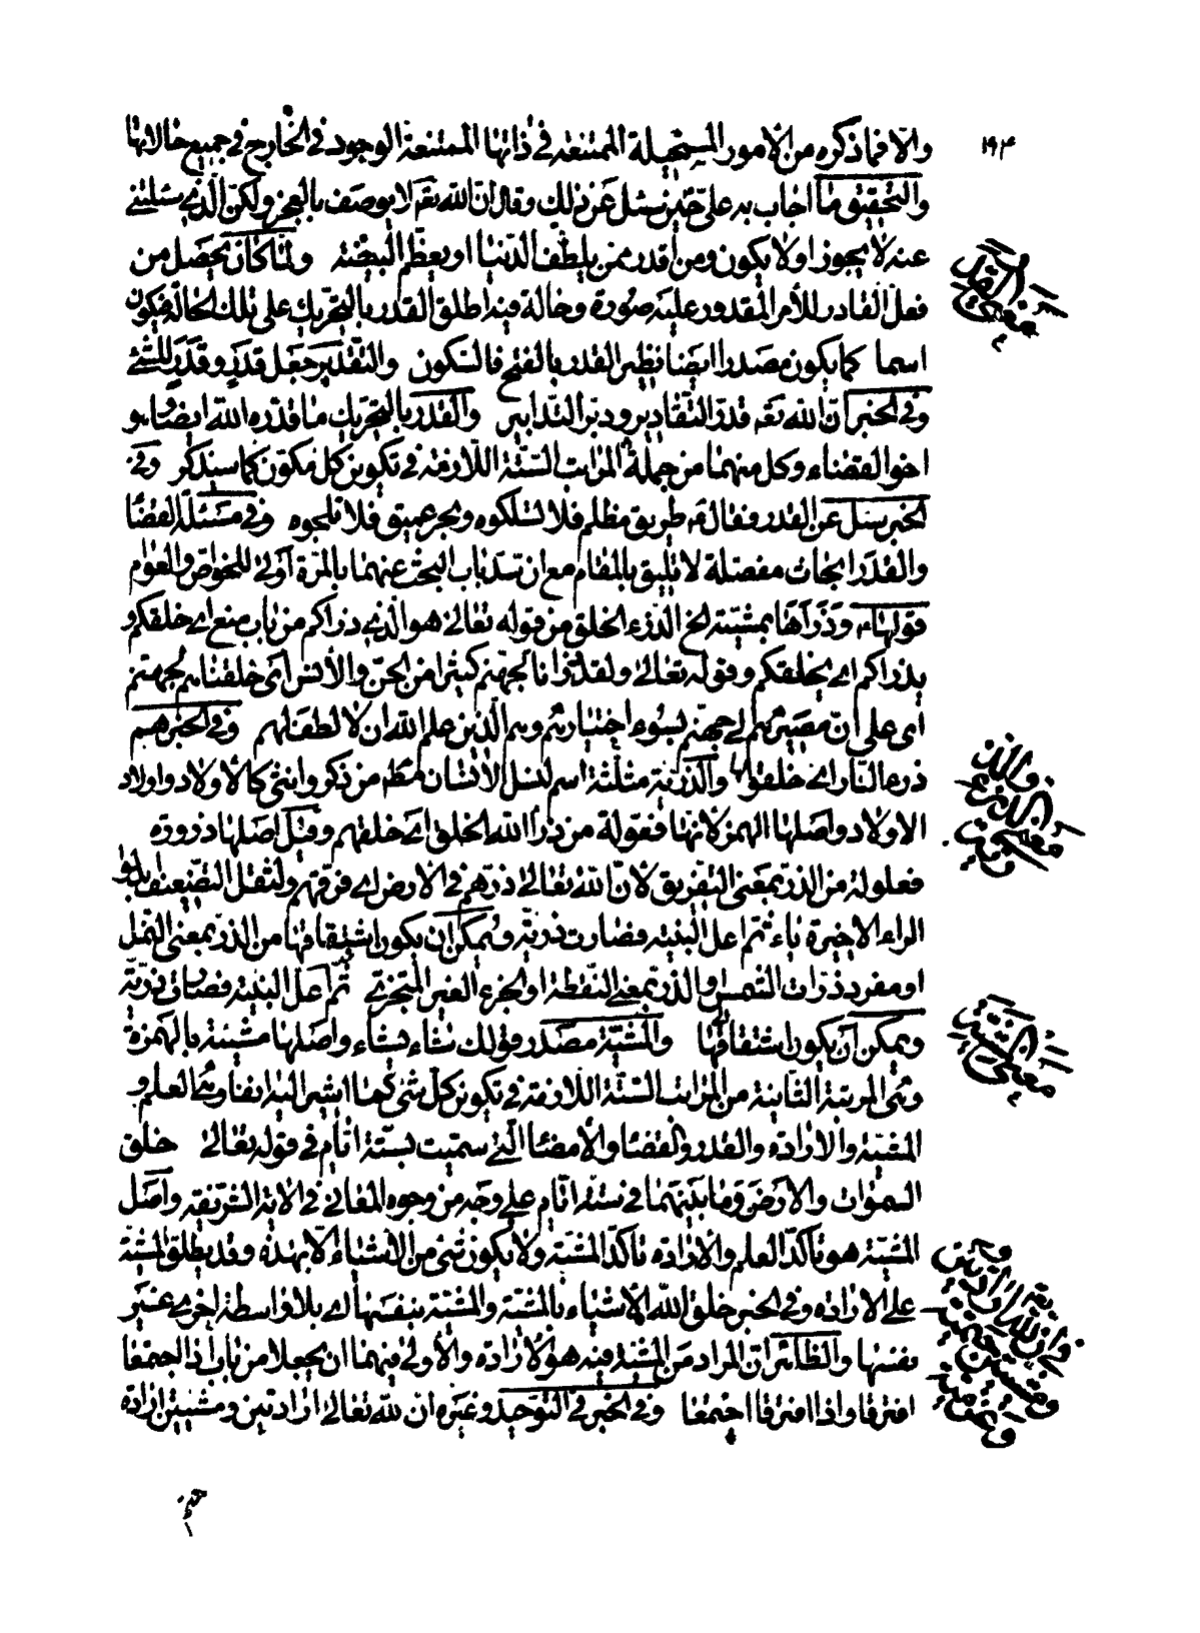 ١٩۴
والا فما ذكره من الأمور المستحيلة الممتنعة في ذاتها الممتنعة الوجود في الخارج في جميع حالاتها
والتحقيق ما اجاب به علي حين سئل عن ذلك وقال ان الله تعم لا يوصف بالعجز ولكن الذي سئلتني
عنه لا يجوز اولا يكون ومن أقدر ممن يلطف الدنيا او يعظم البيضة ولما كان يحصل من
فعل القادر للأمر المقدور عليه صورة وحالة فيه اطلق القدر بالتحريك على تلك الحالة فيكون
اسما كما يكون مصدرا ايضا نظير القدر بالفتح فالسكون والتقدير جعل قدر وقدر للشئ
وفي الخبر ان الله تعم قدر التقادير ودبر التدابير والقدر بالتحريك ما قدره الله ايضا وهو
اخو القضاء وكل منهما من جملة المراتب الستة اللازمة في تكوين كل مكون كما سيذكر وفي
الخبر سئل عن القدر فقال طريق مظلم فلا تسلكوه وبحر عميق فلا تلجوه وفي مسئلة القضا
والقدر ابحاث مفصلة لا تليق بالمقام مع ان سد باب البحث عنهما بالمرة أولى للخواص والعوام
قولها وذرأها بمشيته الخ الذرء الخلق من قوله تعالى هو الذي ذراكم من باب منع اي خلقكم و
يذراكم اي يخلقكم وقوله تعالى ولقد ذرانا لجهنم كثيرا من الجن والأنس اى خلقناهم لجهنم
اى على ان مصيرهم الى جهنم لسوء اختيارهم وهم الذين علم الله ان لا لطف لهم وفي الخبر هم
ذرء النار اي خلقوا لها والذرية مثلثة اسم لنسل الأنسان من ذكر وانثى كالأولاد واولاد
الاولاد واصلها الهمز لانها فعولة من ذرأ الله الخلق اى خلقهم وقيل اصلها ذرورة
فعلولة من الذر بمعنى التفريق لأن الله تعالى ذرهم في الارض اي فرقهم ولثقل التضعيف
الراء الاخيرة ياء ثم اعل البنية فصارت ذرية ويمكن ان يكون اشتقاقها من الذر بمعنى النمل
او مفرد ذرات الشمس او الذر بمعنى النقطة او الجزء الغير المتجزي ثم اعل البنية فصارت ذرية
ويمكن ان يكون اشتقاقها والمشية مصدر قولك شاء يشاء واصلها مشيئة بالهمزة
وهي المرتبة الثانية من المراتب الستة اللازمة في تكوين كل شئ كما اشير اليه وهي العلم و
المشية والارادة والقدر والقضا والأمضا التي سميت بستة ايام في قوله تعالى خلق
السموات والارض وما بينهما في ستة ايام على وجه من وجوه المعاني في الاية الشريفة واصل
المشية هو تأكد العلم والارادة تأكد المشية ولا يكون شئ من الأشياء الا بهذه وقد يطلق المشية
على الارادة وفي الخبر خلق الله الأشياء بالمشية والمشية بنفسها اي بلا واسطة اخرى غير
نفسها والظاهر ان المراد من المشية فيه هو الارادة والأولى فيهما ان يجعلا من باب اذا اجتمعا
افترقا واذا افترقا اجتمعا وفي الخبر في التوحيد وغيره ان لله تعالى ارادتين ومشيتين ارادة
معنى القدر
والذرية
معنى المشية
حتم